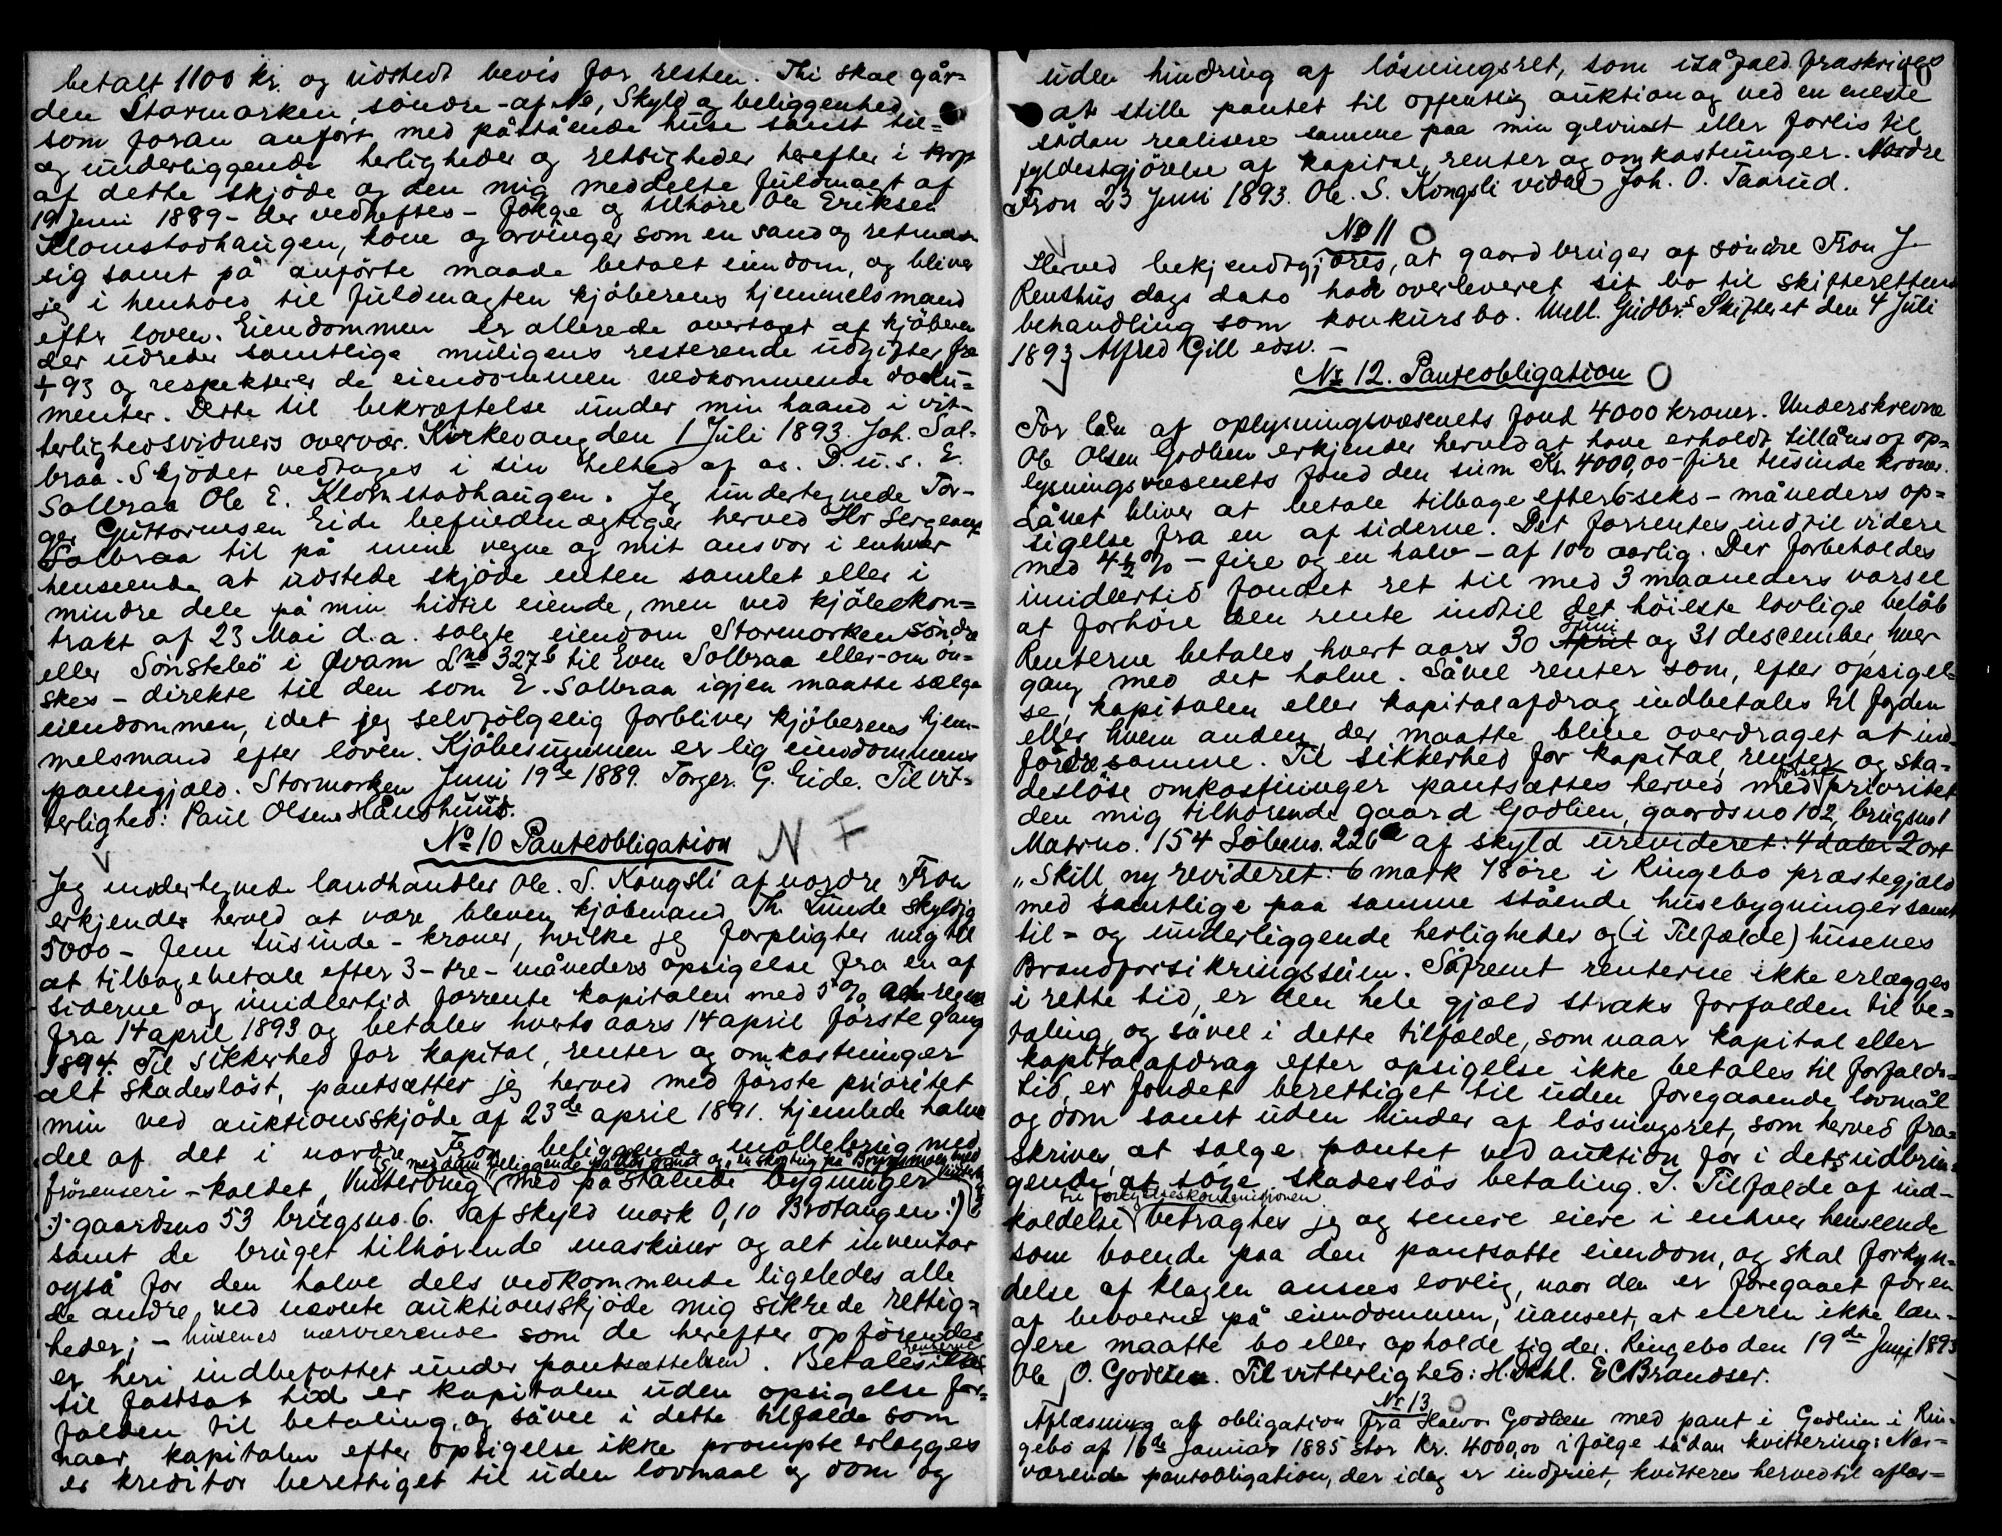 betalt 1100 kr. og udstedt bevis for resten. Thi skal går-
den Stormorken, søndre - af No, Skyld og beliggenhed
som foran anført med påstående huse samt til=
og underliggende herligheder og rettigheder herefter i krop
af dette skjøde og den mig meddelte fuldmagt af
19 Juni 1889 - der vedheftes - følge og tilhøre Ole Eriksen
Klomstadhaugen, kone og arvinger som en sand og retmæs
sig samt på anførte maade betalt eiendom, og bliver
jeg i henhold til fuldmagten kjøberens hjemmelsmand
efter loven. Eiendommen er allerede overtaget af kjøberen
der udreder samtlige muligens resterende udgifter fra
93 og respekterer de eiendommen vedkommende doku=
menter. Dette til bekræftelse under min haand i vit-
terlighedsvidners overvær. Kirkevang den 1 Juli 1893. Joh. Sol-
braa. Skjødet vedtages i sin helhed af os. D.u.s. E.
Solbraa Ole E. Klomstadhaugen. Jeg undertegnede Tor-
ger Guttormsen Eide befuldmægtiger herved Hr Sergeant
Solbraa til på mine vegne og mit ansvar i enhver
henseende at udstede skjøde enten samlet eller i
mindre dele på min hidtil eiende, men ved kjøbekon=
trakt af 23 Mai d.a. solgte eiendom Stormorken søndre
eller Sønstebø i Qvam Lno 327b til Even Solbraa eller - om øn-
skes - direkte til den som E. Solbraa igjen maatte sælge
eiendommen, idet jeg selvfølgelig forbliver kjøberens hjem-
melsmand efter loven. Kjøbesummen er lig eiendommens
pantegjæld. Stormorken Juni 19de 1889. Torger. G. Eide. Til vit-
terlighed: Paul Olsen Hånshuus.
No 10 Panteobligation N. F
Jeg undertegnede landhandler Ole. S. Kongsli af nordre Fron
erkjender herved at være bleven kjøbmand Th. Lunde skyldig
5000 - fem tusinde - kroner, hvilke jeg forpligter mig til
at tilbagebetale efter 3 - tre - måneders opsigelse fra en af
siderne og imidlertid forrente kapitalen med 5% at regne
fra 14 april 1893 og betales hverts aars 14 april første gang
1894. Til sikkerhed for kapital, renter og omkostninger
alt skadesløst, pantsætter jeg herved med første prioritet
min ved auktionsskjøde af 23de april 1891. hjemlede halve
del af det i nordre Fron beliggende møllebrug med
frøsenseri - kaldet Vinterbrug med påstående bygninger
:/: gaardsno 53 brugsno. 6. af skyld mark 0,10 Brotangen :/:
samt de bruget tilhørende maskiner og alt inventar
også for den halve dels vedkommende ligeledes alle
de andre ved nævnte auktionsskjøde mig sikrede rettig=
heder; - husenes nærværende som de herefter opførendes
er heri indbefattet under pantsættelsen. Betales renterne ikke
til fastsat tid er kapitalen uden opsigelse for=
falden til betaling, og såvel i dette tilfælde som
naar kapitalen efter opsigelse ikke prompte erlægges
er kreditor berettiget til uden lovmaal og dom og
10
uden hindring af løsningsret, som isåfald fraskrives
at stille pantet til offentlig auktion og ved en eneste
sådan realisere samme paa min gevinst eller forlis til
fyldestgjørelse af kapital, renter og omkostninger. Nordre
Fron 23 Juni 1893. Ole. S. Kongsli vidne Joh. O. Taarud.
No 11
Herved bekjendtgjøres, at gaardbruger af søndre Fron J.
Rensthus dags dato har overleveret sit bo til skifterettens
behandling som konkursbo. Mell. Gudbr.s Skifteret den 4 Juli
1893 Alfred Gill edsv. -
No 12. Panteobligation
For lån af oplysningsvæsenets fond 4000 kroner. Underskrevne
Ole Olsen Godlien erkjender herved at have erholdt tillåns af op=
lysningsvæsenets fond den sum Kr. 4000,00 - fire tusinde kroner.
Lånet bliver at betale tilbage efter 6 - seks - måneders op=
sigelse fra en af siderne. Det forrentes indtil videre
med 4½ % - fire og en halv - af 100 aarlig. Der forbeholdes
imidlertid fondet ret til med 3 maaneders varsel
at forhøie den rente indtil det høieste lovlige beløb
Renterne betales hvert aars 30 Juni og 31 descember, hver
gang med det halve. Såvel renter som, efter opsigel=
se, kapitalen eller kapitalafdrag indbetales til fogden
eller hvem anden der maatte blive overdraget at ind-
fordre samme. Til sikkerhed for kapital, renter og ska=
desløse omkostninger pantsættes herved med første prioritet
den mig tilhørende gaard Godlien, gaardsno 102, brugsno 1
Matrno. 154 Løbeno. 226a af skyld urevideret: 4 daler 2 ort
" Skill, ny revideret: 6 mark 78 øre i Ringebo præstegjæld
med samtlige paa samme stående husebygninger samt
til= og underliggende herligheder og (i Tilfælde) husenes
Brandforsikringssum. Såfremt renterne ikke erlægges
i rette tid, er den hele gjæld straks forfalden til be=
taling, og såvel i dette tilfælde, som naar kapital eller
kapitalafdrag efter opsigelse ikke betales til forfalds=
tid, er fondet berettiget til uden foregaaende lovmål
og dom samt uden hinder af løsningsret, som herved fra=
skrives, at sælge pantet ved auktion for i dets udbrin-
gende at søge skadesløs betaling. I. Tilfælde af ind-
kaldelse til forligelseskommisjonen betragtes jeg og senere eiere i enhver henseende
som boende paa den pantsatte eiendom, og skal forkyn=
delse af klagen ansees lovlig, naar den er foregaaet for en
af beboerne på eiendommen, uanseet, at eieren ikke læn-
gere maatte bo eller opholde sig der. Ringebo den 19de Juni 1893
Ole O. Godlien. Til vitterlighed: H. Dahl. E C Brandser.
No 13
Aflæsning af obligation fra Halvor Godlien med pant i Godlien i Rin-
gebo af 16de Januar 1885 stor Kr. 4000,00 ifølge sådan kvittering: Nær-
værende pantobligation, der idag er indfriet, kvitteres herved til aflæs=